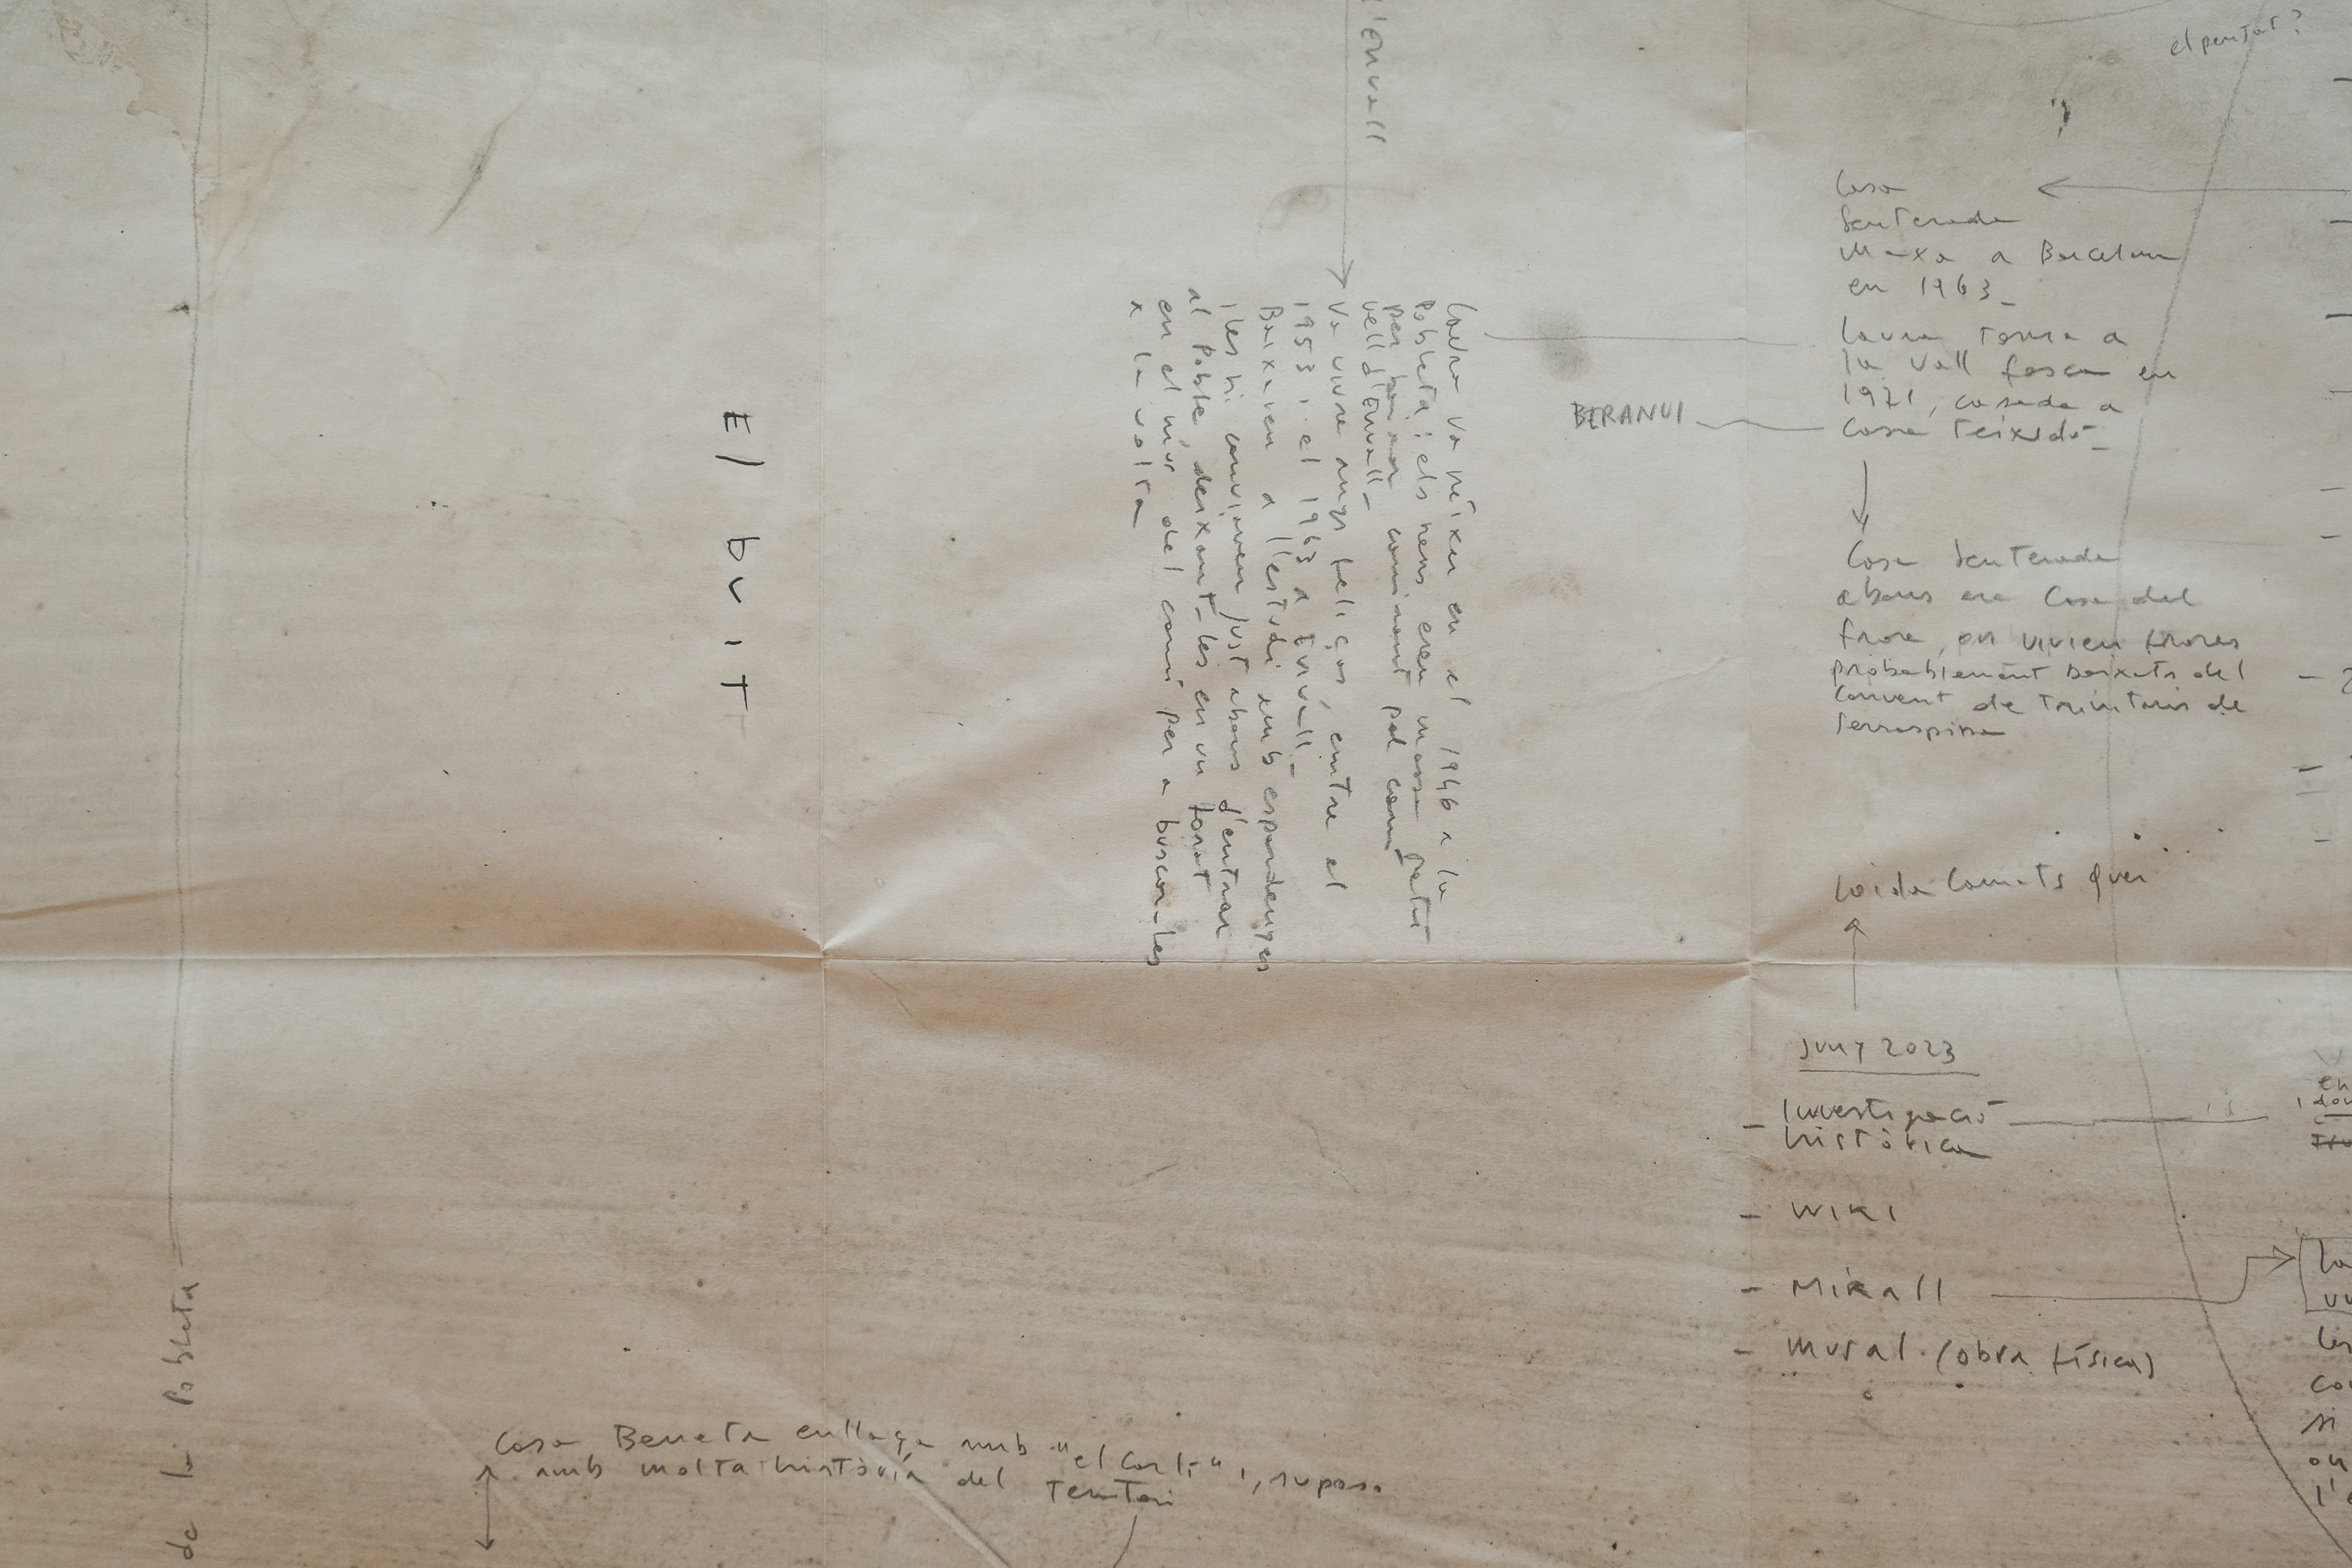 el penjat?
l'Envall
Casa
Senterada
Marxa a Barcelona
en 1963_
Laura torna a
la Vall fosca en
1971, casada a
Casa Teixidó_
BERANUI
Laura va néixer en el 1946 a la
Pobleta i els nens eren massa petits
per baixar caminant pel camí
vell d'Envall_
Va viure anys feliços, entre el
1953 i el 1963 a Envall_
Baixaven a l'estudi amb espardenyes
i les hi canviaven just abans d'entrar
al Poble, deixant-les en un forat
en el mur del camí per a buscar-les
a la volta
El buit
Casa Senterada
abans era Casa del
frare, on vivien frares
probablement baixats del
Convent de trinitaris de
Terraspina
Juny 2023
- Investigació
històrica
- WIKI
- Mirall
- Mural (obra física)
de la Pobleta
Casa Beneta enllaça amb "el Carli", i, suposo
amb molta història del
Territori